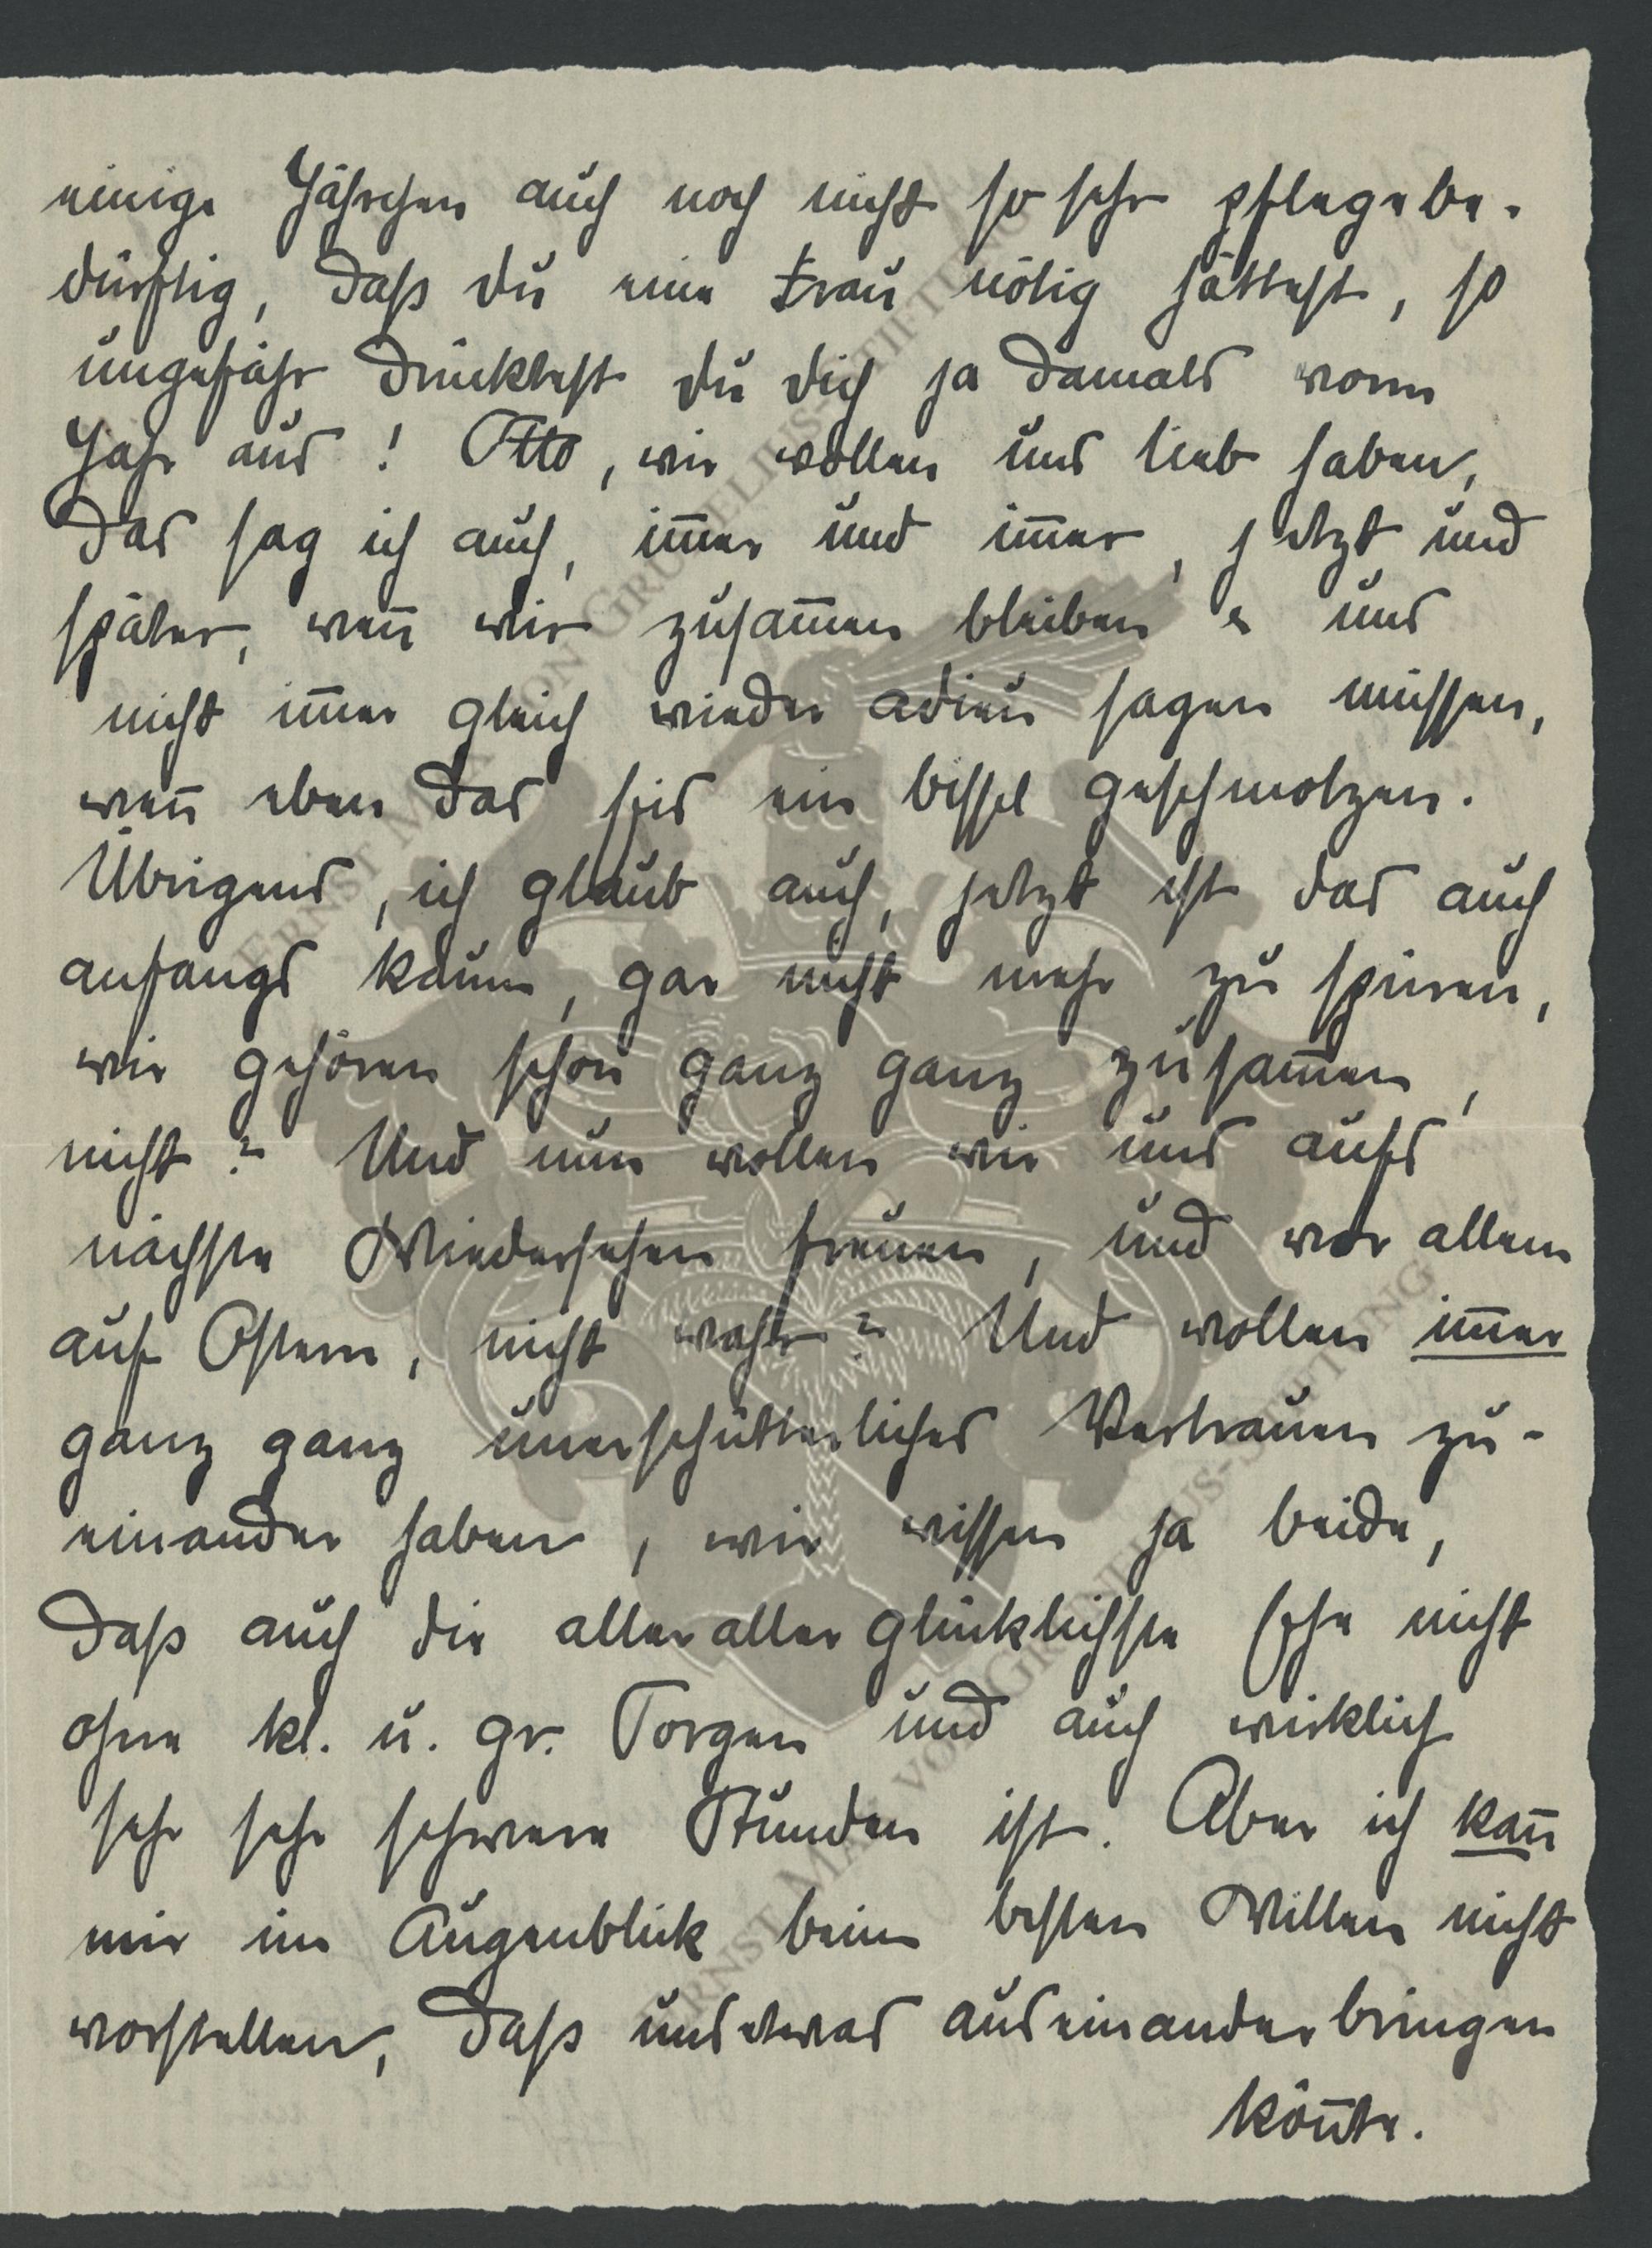 einige Jährchen auch noch nicht so sehr pflegebe-
dürftig, daß du eine Frau nötig hättest, so
ungefähr drücktest du dich ja damals vorm
Jahr aus! Otto, wir wollen uns lieb haben,
das sag ich auch, im̄er und im̄er, jetzt und
später, wen̄ wir zusam̄en bleiben & uns
nicht im̄er gleich wieder adieu sagen müssen,
wen̄ eben das Eis ein bissel geschmolzen.
Übrigens, ich glaub auch, jetzt ist das auch
anfangs kaum, gar nicht mehr zu spüren,
wir gehören schon ganz ganz zusam̄en,
nicht? Und nun wollen wir uns aufs
nächste Wiedersehen freuen, und vor allem
auf Ostern, nicht wahr? Und wollen im̄er
ganz ganz unerschütterliches Vertrauen zu-
einander haben, wir wissen ja beide,
daß auch die allerallerglücklichste Ehe nicht
ohne kl. u. gr. Sorgen und auch wirklich
sehr sehr schwere Stunden ist. Aber ich kan̄
mir im Augenblick beim besten Willen nicht
vorstellen, daß uns etwas auseinanderbringen
kön̄te.
ERNST MAX VON GRUNELIUS-STIFTUNG
ERNST MAX VON GRUNELIUS-STIFTUNG